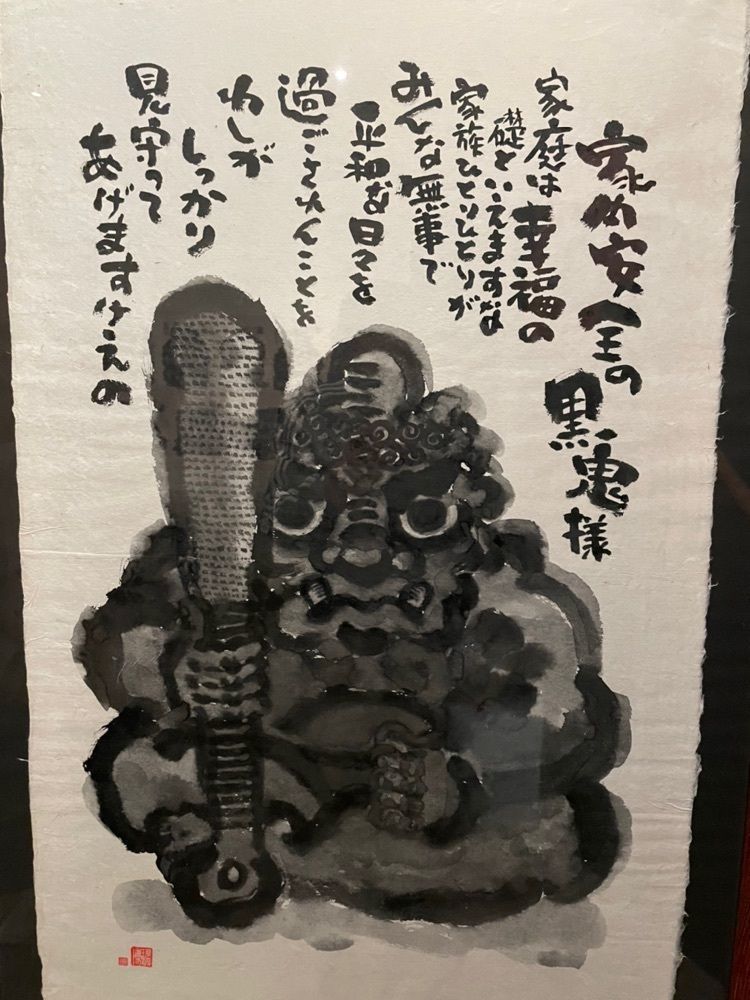 家内安全の
黒鬼様
家庭は幸福の
礎といえますな
家族ひとりひとりが
みんな無事で
平和な日々を
過ごされんことを
わしが
しっかり
見守って
あげますけえの